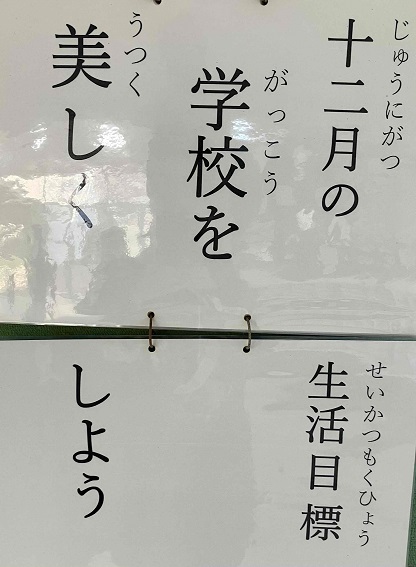 じゅうにがつ
十二月の
せいかつもくひょう
生活目標
がっこう
学校を
うつく
美しく
しよう